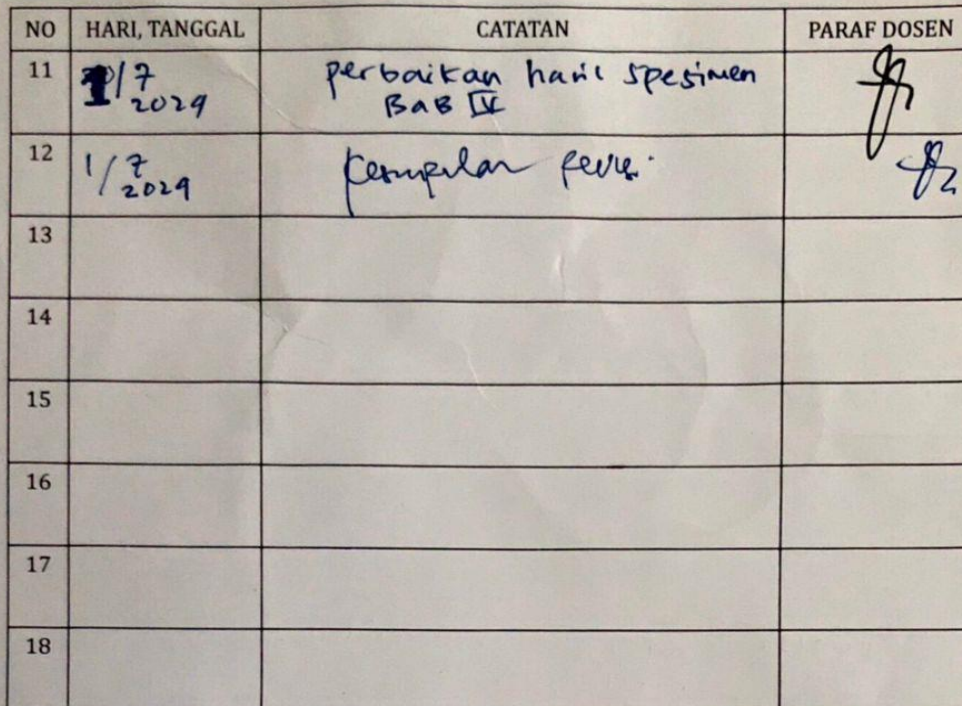 NO HARI, TANGGAL CATATAN PARAF DOSEN
11 1/7 2024 perbaikan hasil spesimen
BAB IV
12 1/7 2024 kesimpulan revisi.
13
14
15
16
17
18